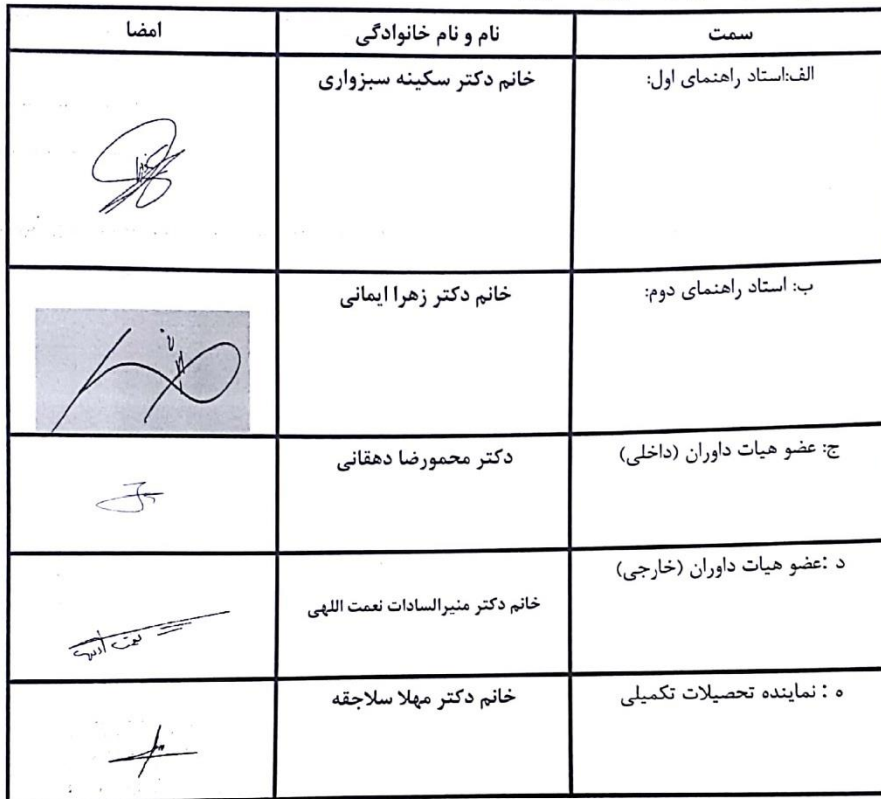 سمت نام و نام خانوادگی امضا
الف:استاد راهنمای اول: خانم دکتر سکینه سبزواری
ب: استاد راهنمای دوم: خانم دکتر زهرا ایمانی
ج: عضو هیات داوران (داخلی) دکتر محمورضا دهقانی
د :عضو هیات داوران (خارجی)
خانم دکتر منیرالسادات نعمت اللهی
ه : نماینده تحصیلات تکمیلی خانم دکتر مهلا سلاجقه